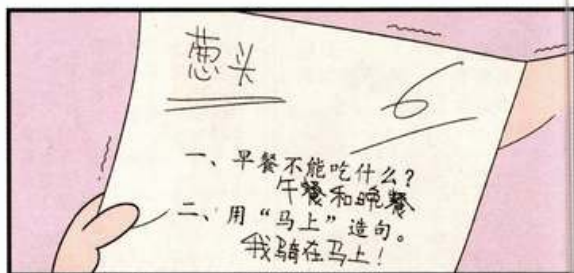 葱头
6
一、早餐不能吃什么?
午餐和晚餐
二、用“马上”造句。
我骑在马上!